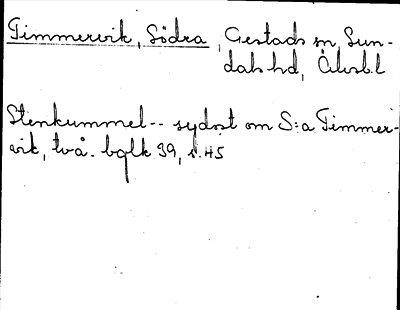 Timmervik, Södra, Gestads sn, Sun-
dals hd, Älvsb.l
Stenkummel -- sydost om S:a Timmer-
vik, två. bglk 39, s. 45